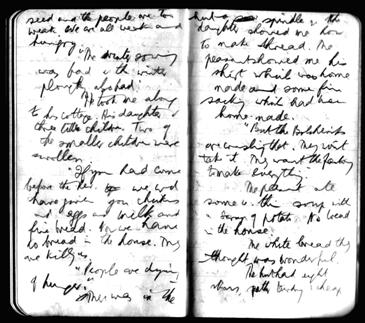 seed and the people are too
weak. We are all weak and
hungry.
"The winter sowing
was bad & the winter
ploughing also bad.
He took me along
to his cottage. His daughter &
three little children. Two of
the smaller children were
swollen.
"If you had come
before the Rev. we wd
have given you chickens
and eggs and milk and
fine bread. Now we have
no bread in the house. They
are killing us.
"People are dying
of hunger."
There was in the
hut a spindle & the
daughter showed me how
to make thread. The
peasant showed me his
shirt which was home
made and some fine
sacking which had been
home made.
"But the Bolsheviks
are crushing that. They won't
take it. They want the factory
to make everything."
The peasant ate
some thin soup with
a scrap of potato. No bread
in the house.
The white bread they
thought was wonderful.
The hut had eight